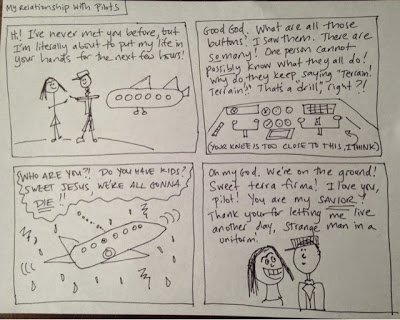 My Relationship with Pilots
Hi! I've never met you before, but
I'm literally about to put my life in
your hands for the next few hours!
Good God. What are all those
buttons? I saw them. There are
so many! One person cannot
possibly know what they all do!
Why do they keep saying "Terrain,
Terrain!" That's a drill, right?!
(YOUR KNEE IS TOO CLOSE TO THIS, I THINK)
WHO ARE YOU?! DO YOU HAVE KIDS?
SWEET JESUS, WE'RE ALL GONNA
DIE!!
Oh my God. We're on the ground!
Sweet terra firma! I love you,
pilot! You are my SAVIOR!
Thank you for letting me live
another day, strange man in a
uniform.